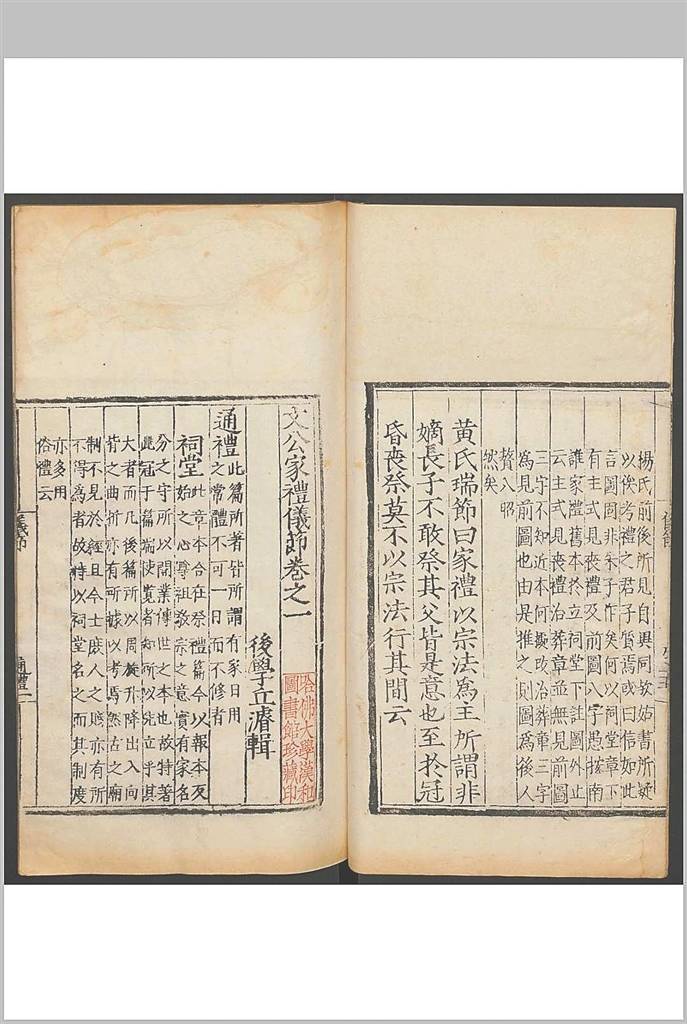 楊氏前後所見自異同故姑書所疑
以俟考禮之君子質焉或曰信如此
言圖固非朱子作矣何以祠堂章下
有主式見喪禮及前圖八字愚按南
雝家禮舊本於立祠堂下註圖外止
云主式見喪禮治葬章並無見前圖
三字不知近本何據改治葬章三字
為見前圖也由是推之則圖為後人
贅入昭
然矣
黃氏瑞節曰家禮以宗法為主所謂非
嫡長子不敢祭其父皆是意也至於冠
昏喪祭莫不以宗法行其間云
文公家禮儀節卷之一
哈佛大學漢和
圖書館珍藏印
後學丘濬輯
通禮
此篇所著皆所謂有家日用
之常體不可一日而不修者
祠堂
此章本合在祭禮篇今以報本反
始之心尊祖敬宗之意實有家名
分之守所以開業傳世之本也故特著
此冠于篇端使覽者知所以先立乎其
大者而凡後篇所以周旋升降出入向
背之曲折亦有所據以考焉然古之廟
制不見於經且今士庶人之賤亦有所
不得為者故特以祠堂名之而其制度
亦多用
俗禮云
儀節
通禮一